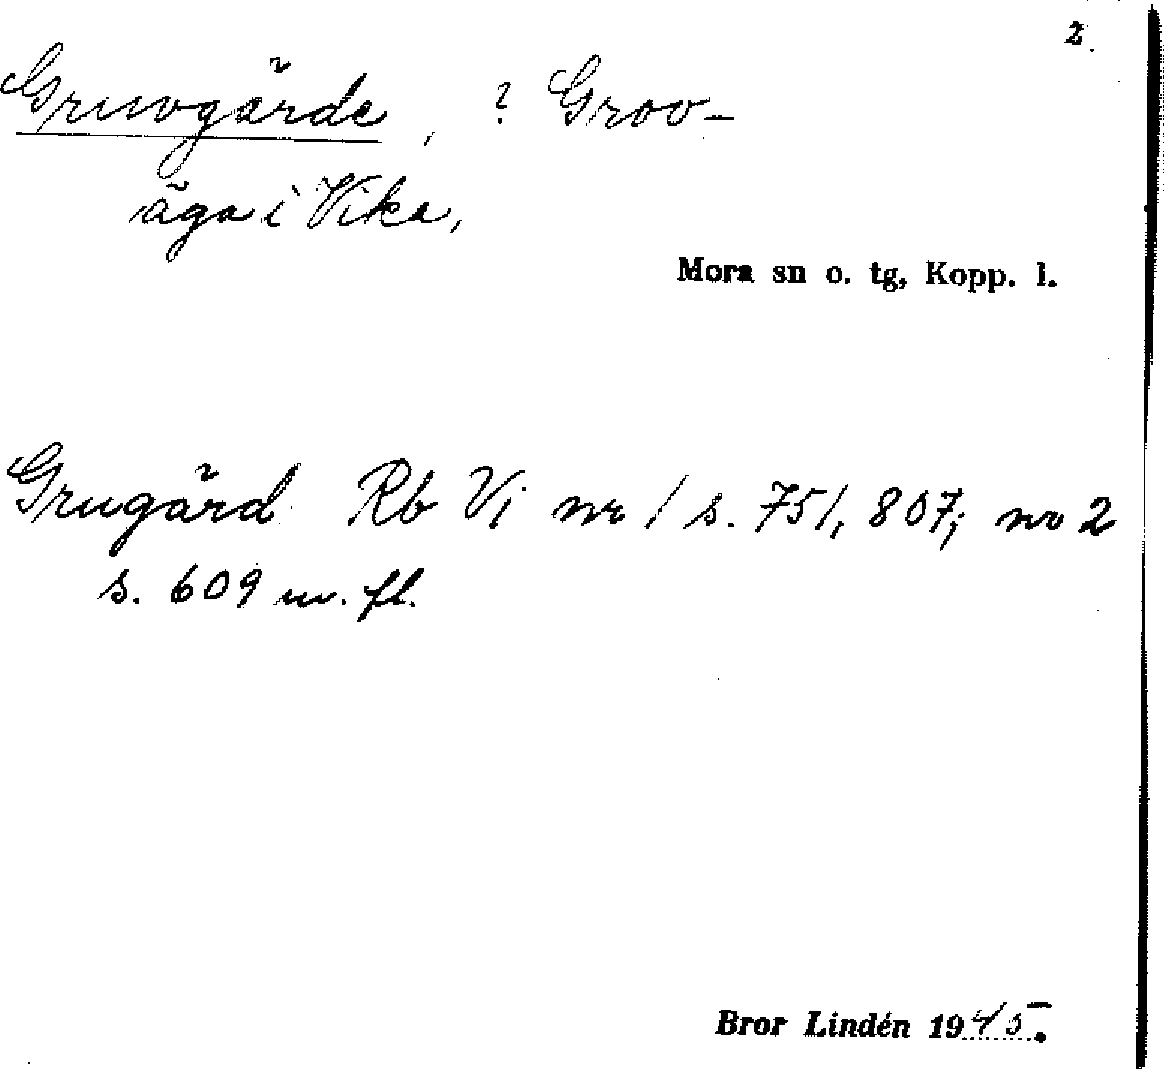 2.
Gruvgärde, ? Grov-
äga i Vika,
Mora sn o. tg, Kopp. l.
Grugärd Rb Vi nr 1 s. 751, 807; nr 2
s. 609 m. fl.
Bror Lindén 1945.